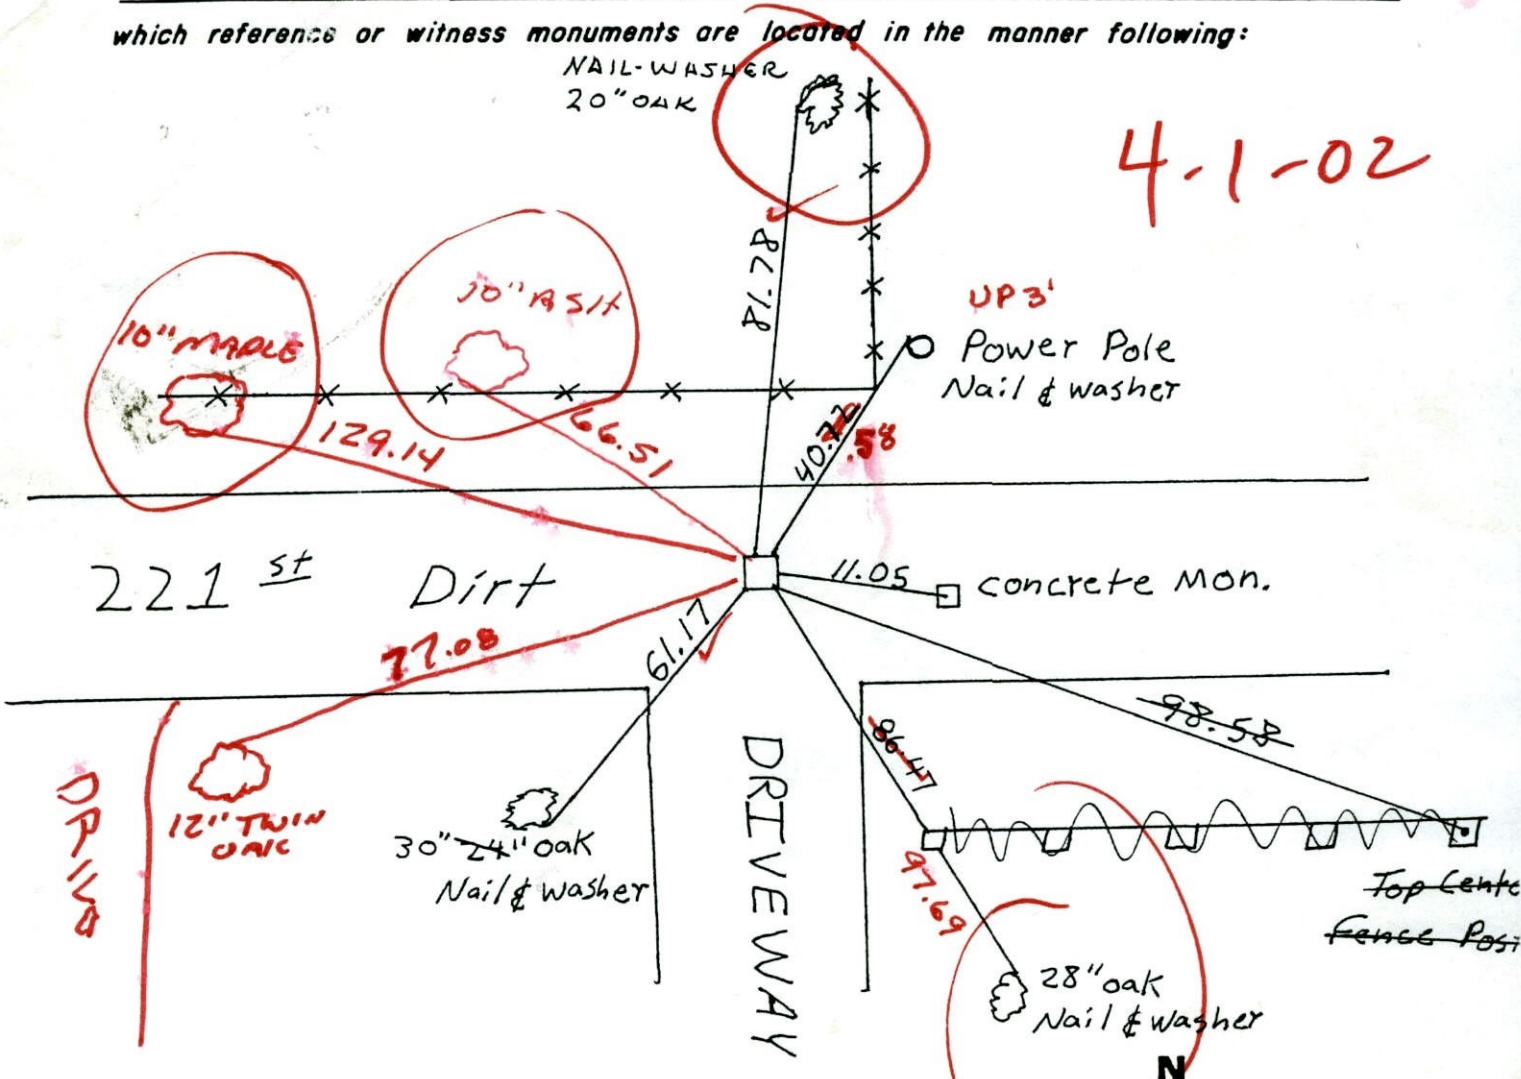 which reference or witness monuments are located in the manner following:
NAIL-WASHER
20" OAK
4-1-02
81.78
10" ASH
UP 3'
10" MAPLE
Power Pole
Nail & washer
129.14
66.51
40.72
.58
221 st Dirt
11.05
concrete Mon.
77.08
61.17
98.58
86.47
DRIVE
DRIVEWAY
12" TWIN
OAK
30" 24" oak
Nail & washer
97.69
Top Cente
Fence Pos
28" oak
Nail & washer
N